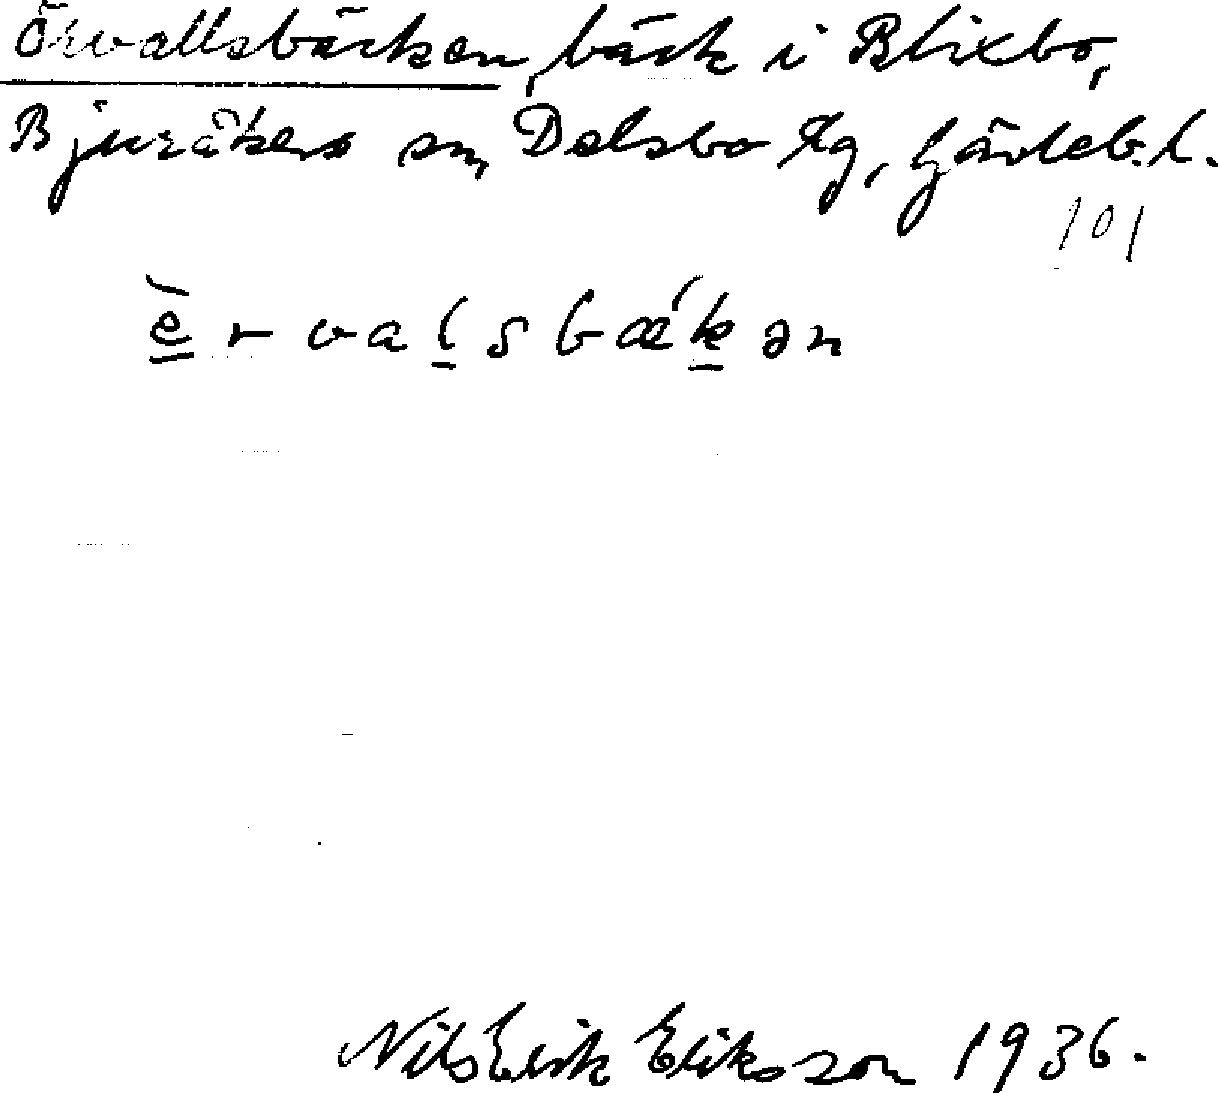 Örvallsbäcken, bäck i Blixbo,
Bjuråkers sn, Delsbo tg, Gävleb. l.
101
èrvalsbækən
Nils Erik Eriksson 1936.